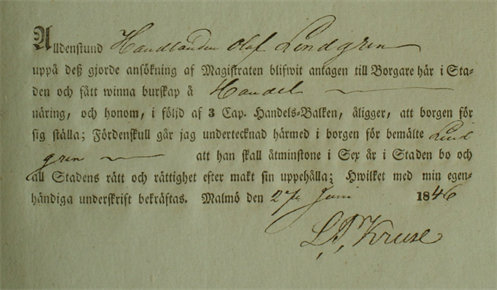 Alldenstund Handlanden Olof Lindgren
uppå deß gjorde ansökning af Magistraten blifwit antagen till Borgare här i Sta-
den och fått winna burskap å Handel
näring, och honom, i följd af 3 Cap. Handels-Balken, åligger, att borgen för
sig ställa; Fördenskull går jag undertecknad härmed i borgen för bemälte Lind
gren att han skall åtminstone i Sex år i Staden bo och
all Stadens rätt och rättighet efter makt sin uppehålla; Hwilket med min egen-
händiga underskrift bekräftas. Malmö den 27 Juni 1846
Kruse